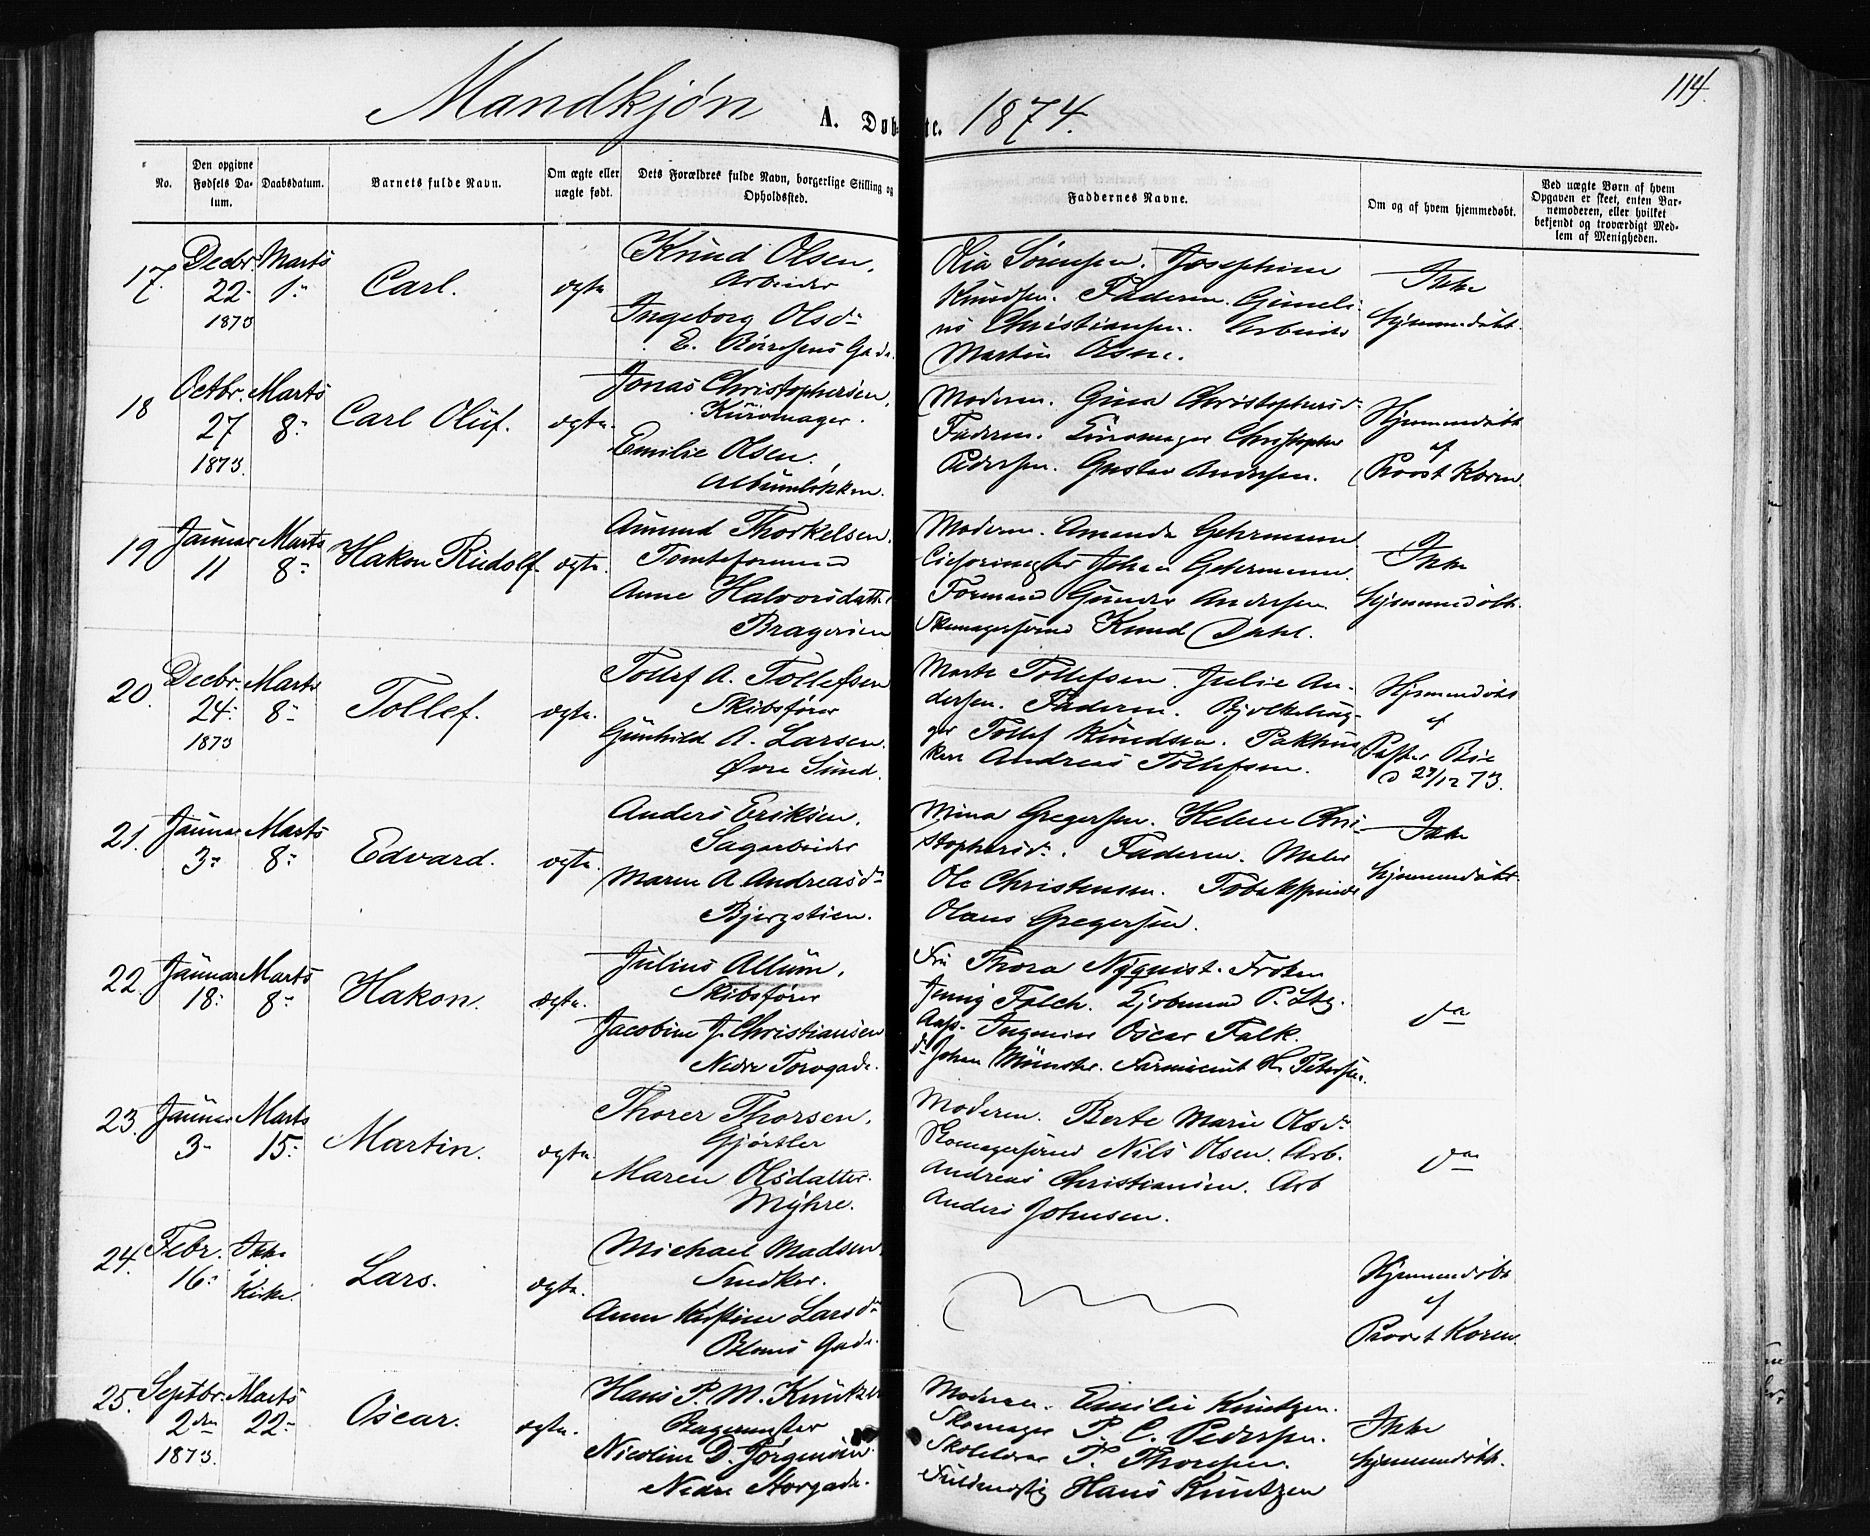 Mandkjøn A. Døbte. 1874. 114.
No.
Den opgivne Fødsels Datum.
Daabsdatum.
Barnets fulde Navn.
Om ægte eller uægte født.
Dets Forældres fulde Navn, borgerlige Stilling og Opholdssted.
Faddernes Navne.
Om og af hvem hjemmedøbt.
Ved uægte Børn af hvem Opgaven er skeet, enten Barnemoderen, eller hvilket bekjendt og troværdigt Medlem af Menigheden.
17.
Decbr. 22. 1873
Marts 1.
Carl.
ægte
Knud Olsen,
Arbeider
Ingeborg Olsd.
Gade.
Josephine
Knudsen. Faderen.
Christiansen. Arbeider
Martin Olsen.
Ikke
hjemmedøbt.
18
Octbr. 27 1873.
Marts 8.
Carl Oluf.
ægte.
Jonas Christophersen,
Kurvmager.
Emilie Olsen,
Albumløkken.
Moderen. Gina Christophersd.
Faderen. Kurvmager Christopher
Pedersen. Gustav Andersen.
Hjemmedøbt
af
Provst Koren.
19
Januar 11
Marts 8.
Hakon Rudolf
ægte.
Amund Thorkelsen.
Tomteformand
Anne Halvorsdatter
Bragerøen
Moderen. Amanda Gehrmann
Johan Gehrmann.
Formand Gunder Andersen
Skomagersvend Knud Dahl.
Ikke
hjemmedøbt.
20.
Decbr. 24. 1873
Marts 8.
Tollef.
ægte.
Tollef A. Tollefsen
Skibsfører
Gunhild A. Larsen.
Øvre Sund.
Marte Tollefsen. Julie An-
dersen. Faderen.
Tollef Knudsen. Pakhus
Andreas Tollefsen.
Hjemmedøbt
af
Pastor Bøe
27/12 73.
21.
Januar 3.
Marts 8.
Edvard.
ægte.
Anders Eriksen.
Sagarbeider
Maren A. Andreasd.
Bjergstien.
Mina Gregersen. Helene Chri-
stophersd. Faderen. Maler
Ole Christensen. Tobakspinder
Olaus Gregersen.
Ikke
hjemmedøbt.
22.
Januar 18.
Marts 8.
Hakon.
ægte.
Julius Allum,
Skibsfører
Jacobine J. Christiansen
Nedre Torvgade.
Fru Thora Nyquist. Frøken
Jenny Falch. Kjøbmand P. Ltz.
Aass. Ingeniør Oscar Falk.
do Johan Münster. Farmaceut H. Petersen.
do
23.
Januar 3.
Marts 15.
Martin.
ægte.
Thorer Thorsen,
Gjørtler
Maren Olsdatter.
Myhre.
Moderen. Berte Marie Olsd.
Skomagersvend Nils Olsen. Arb.
Andreas Christiansen. Arb
Anders Johnsen.
do
24.
Febr. 16.
Ikke i Kirke.
Lars.
ægte.
Michael Madsen,
Snedker.
Anne Kirstine Larsd.
Gade.
Hjemmedøbt
af
Provst Koren.
25.
Septbr. 2den 1873.
Marts 22.
Oscar.
ægte.
Hans P. M. Knutzen
Bagermester
Nicoline D. Jørgensen.
Nedre Storgade.
Moderen. Emilie Knutzen.
Skomager P. C. Pedersen.
Skolelærer P. Thoresen.
Fuldmægtig Hans Knutzen
Ikke
hjemmedøbt.